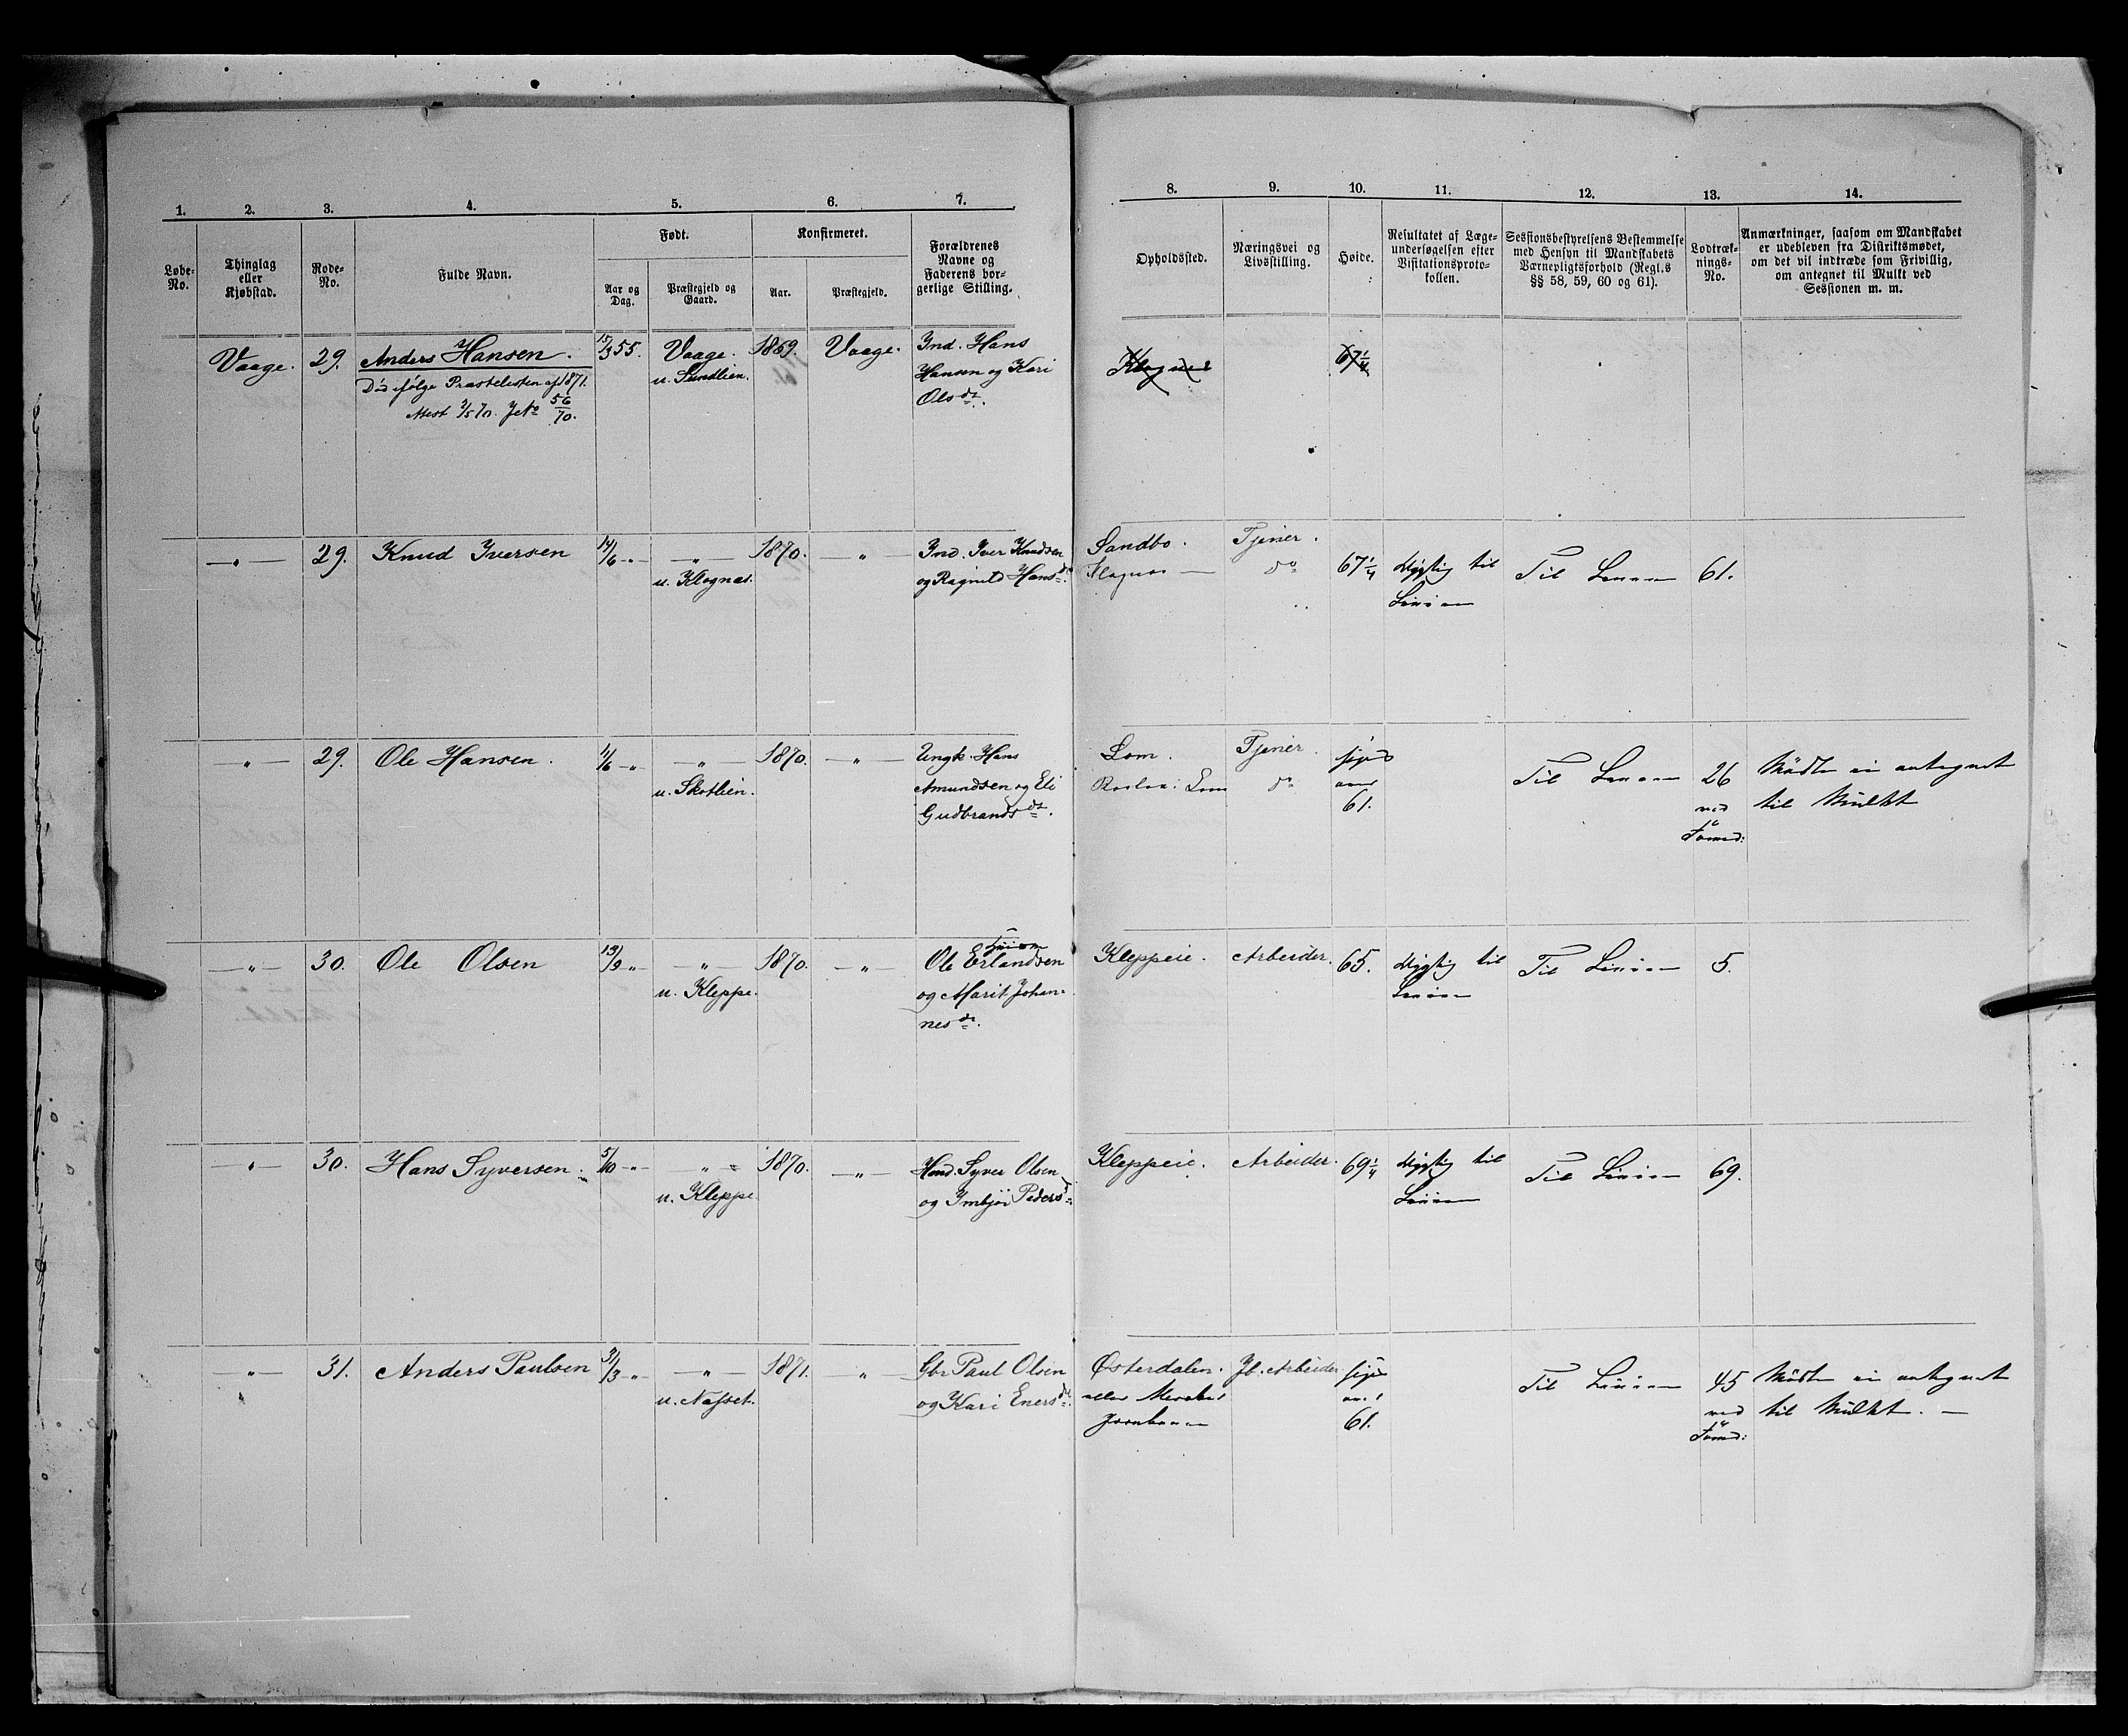 1. 2. 3. 4. 5. 6. 7. 8. 9. 10. 11. 12. 13. 14.
Løbe-
No.
Thinglag
eller
Kjøbstad.
Rode-
No.
Fulde Navn.
Født.
Aar og
Dag.
Præstegjeld og
Gaard.
Konfirmeret.
Aar.
Præstegjeld.
Forældrenes
Navne og
Faderens bor-
gerlige Stilling.
Opholdssted.
Næringsvei og
Livsstilling.
Høide.
Resultatet af Læge-
undersøgelsen efter
Visitationsproto-
kollen.
Sessionsbestyrelsens Bestemmelse
med Hensyn til Mandskabets
Værnepligtsforhold (Regl.s
§§ 58, 59, 60 og 61).
Lodtræk-
nings-
No.
Anmærkninger, saasom om Mandskabet
er udebleven fra Distriktsmødet,
om det vil indtræde som Frivillig,
om antegnet til Mulkt ved
Sessionen m. m.
Vaage. 29. Anders Hansen. 15/3 55. Vaage. 1869. Vaage. Ind. Hans
Død ifølge Præstelisten af 1871. u. Sundlien. Hansen og Kari
Attest 3/5 70. JNo 56/70. Ols dt.
67 1/4
—„— 29. Knud Iversen 14/6 -„- —„— 1870. „ — Ind. Iver Knudsen Sandbo. Tjener.
u. Klognæs. og Ragnild Hans dt. Klognæs — do 67 1/4 dygtig til Til Linien 61.
Linien
—„— 29. Ole Hansen. 11/6 -„- —„— 1870. —„— Ungk. Hans Lom. Tjener.
u. Skotlien. Amundsen og Eli Lom do Til Linien 26 Mødte ei antegnet
Gudbrands dt. 61. ved til Mulkt
—„— 30. Ole Olsen 13/9 -„- —„— 1870. —„— Ole Erlandsen Kleppeie. Arbeider. 65. dygtig til Til Linien 5.
u. Kleppe. og Marit Johan- Linien
nes dt.
—„— 30. Hans Syversen. 5/10 -„- „ 1870. —„— Huusm. Syver Olsen Kleppeie. Arbeider. 69 1/4 dygtig til Til Linien 69.
u. Kleppe. og Imbjør Peders dt. Linien
—„— 31. Anders Paulsen 31/3 -„- —„— 1871. —„— Gbr Paul Olsen Østerdalen. Jb. Arbeider Til Linien 45 Mødte ei antegnet
u. Næsset. og Kari Eners dt. eller Meraker 61. ved til Mulkt. —
Jernbanen